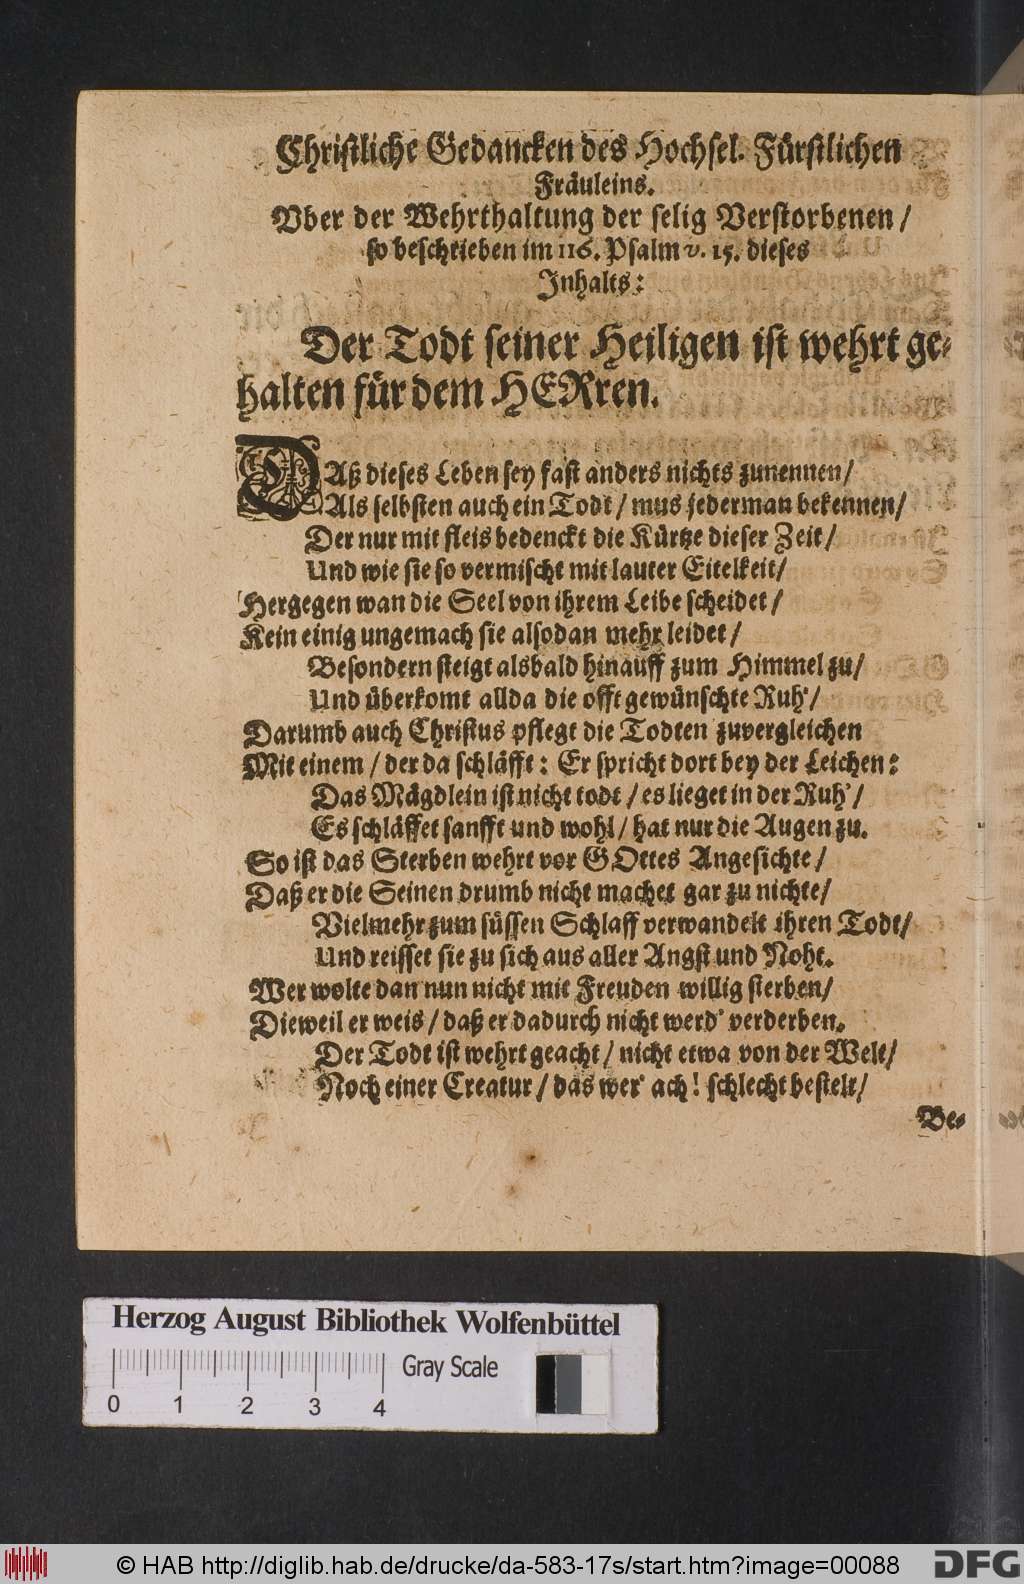 Christliche Gedancken des Hochsel. Fürstlichen
Fräuleins.
Vber der Wehrthaltung der selig Verstorbenen /
so beschrieben im 116. Psalm v. 15. dieses
Inhalts:
Der Todt seiner Heiligen ist wehrt ge-
halten für dem HERren.
DAß dieses Leben sey fast anders nichts zunennen /
Als selbsten auch ein Todt / mus jederman bekennen /
Der nur mit fleis bedenckt die Kürtze dieser Zeit /
Und wie sie so vermischt mit lauter Eitelkeit /
Hergegen wan die Seel von ihrem Leibe scheidet /
Kein einig ungemach sie alsodan mehr leidet /
Besondern steigt alsbald hinauff zum Himmel zu /
Und überkomt allda die offt gewünschte Ruh' /
Darumb auch Christus pflegt die Todten zuvergleichen
Mit einem / der da schläfft: Er spricht dort bey der Leichen:
Das Mägdlein ist nicht todt / es lieget in der Ruh' /
Es schläffet sanfft und wohl / hat nur die Augen zu.
So ist das Sterben wehrt vor GOttes Angesichte /
Daß er die Seinen drumb nicht machet gar zu nichte /
Vielmehr zum süssen Schlaff verwandelt ihren Todt /
Und reisset sie zu sich aus aller Angst und Noht.
Wer wolte dan nun nicht mit Freuden willig sterben /
Dieweil er weis / daß er dadurch nicht werd' verderben.
Der Todt ist wehrt geacht / nicht etwa von der Welt /
Noch einer Creatur / das wer' ach! schlecht bestelt /
Be-
Herzog August Bibliothek Wolfenbüttel
Gray Scale
0 1 2 3 4
© HAB http://diglib.hab.de/drucke/da-583-17s/start.htm?image=00088
DFG